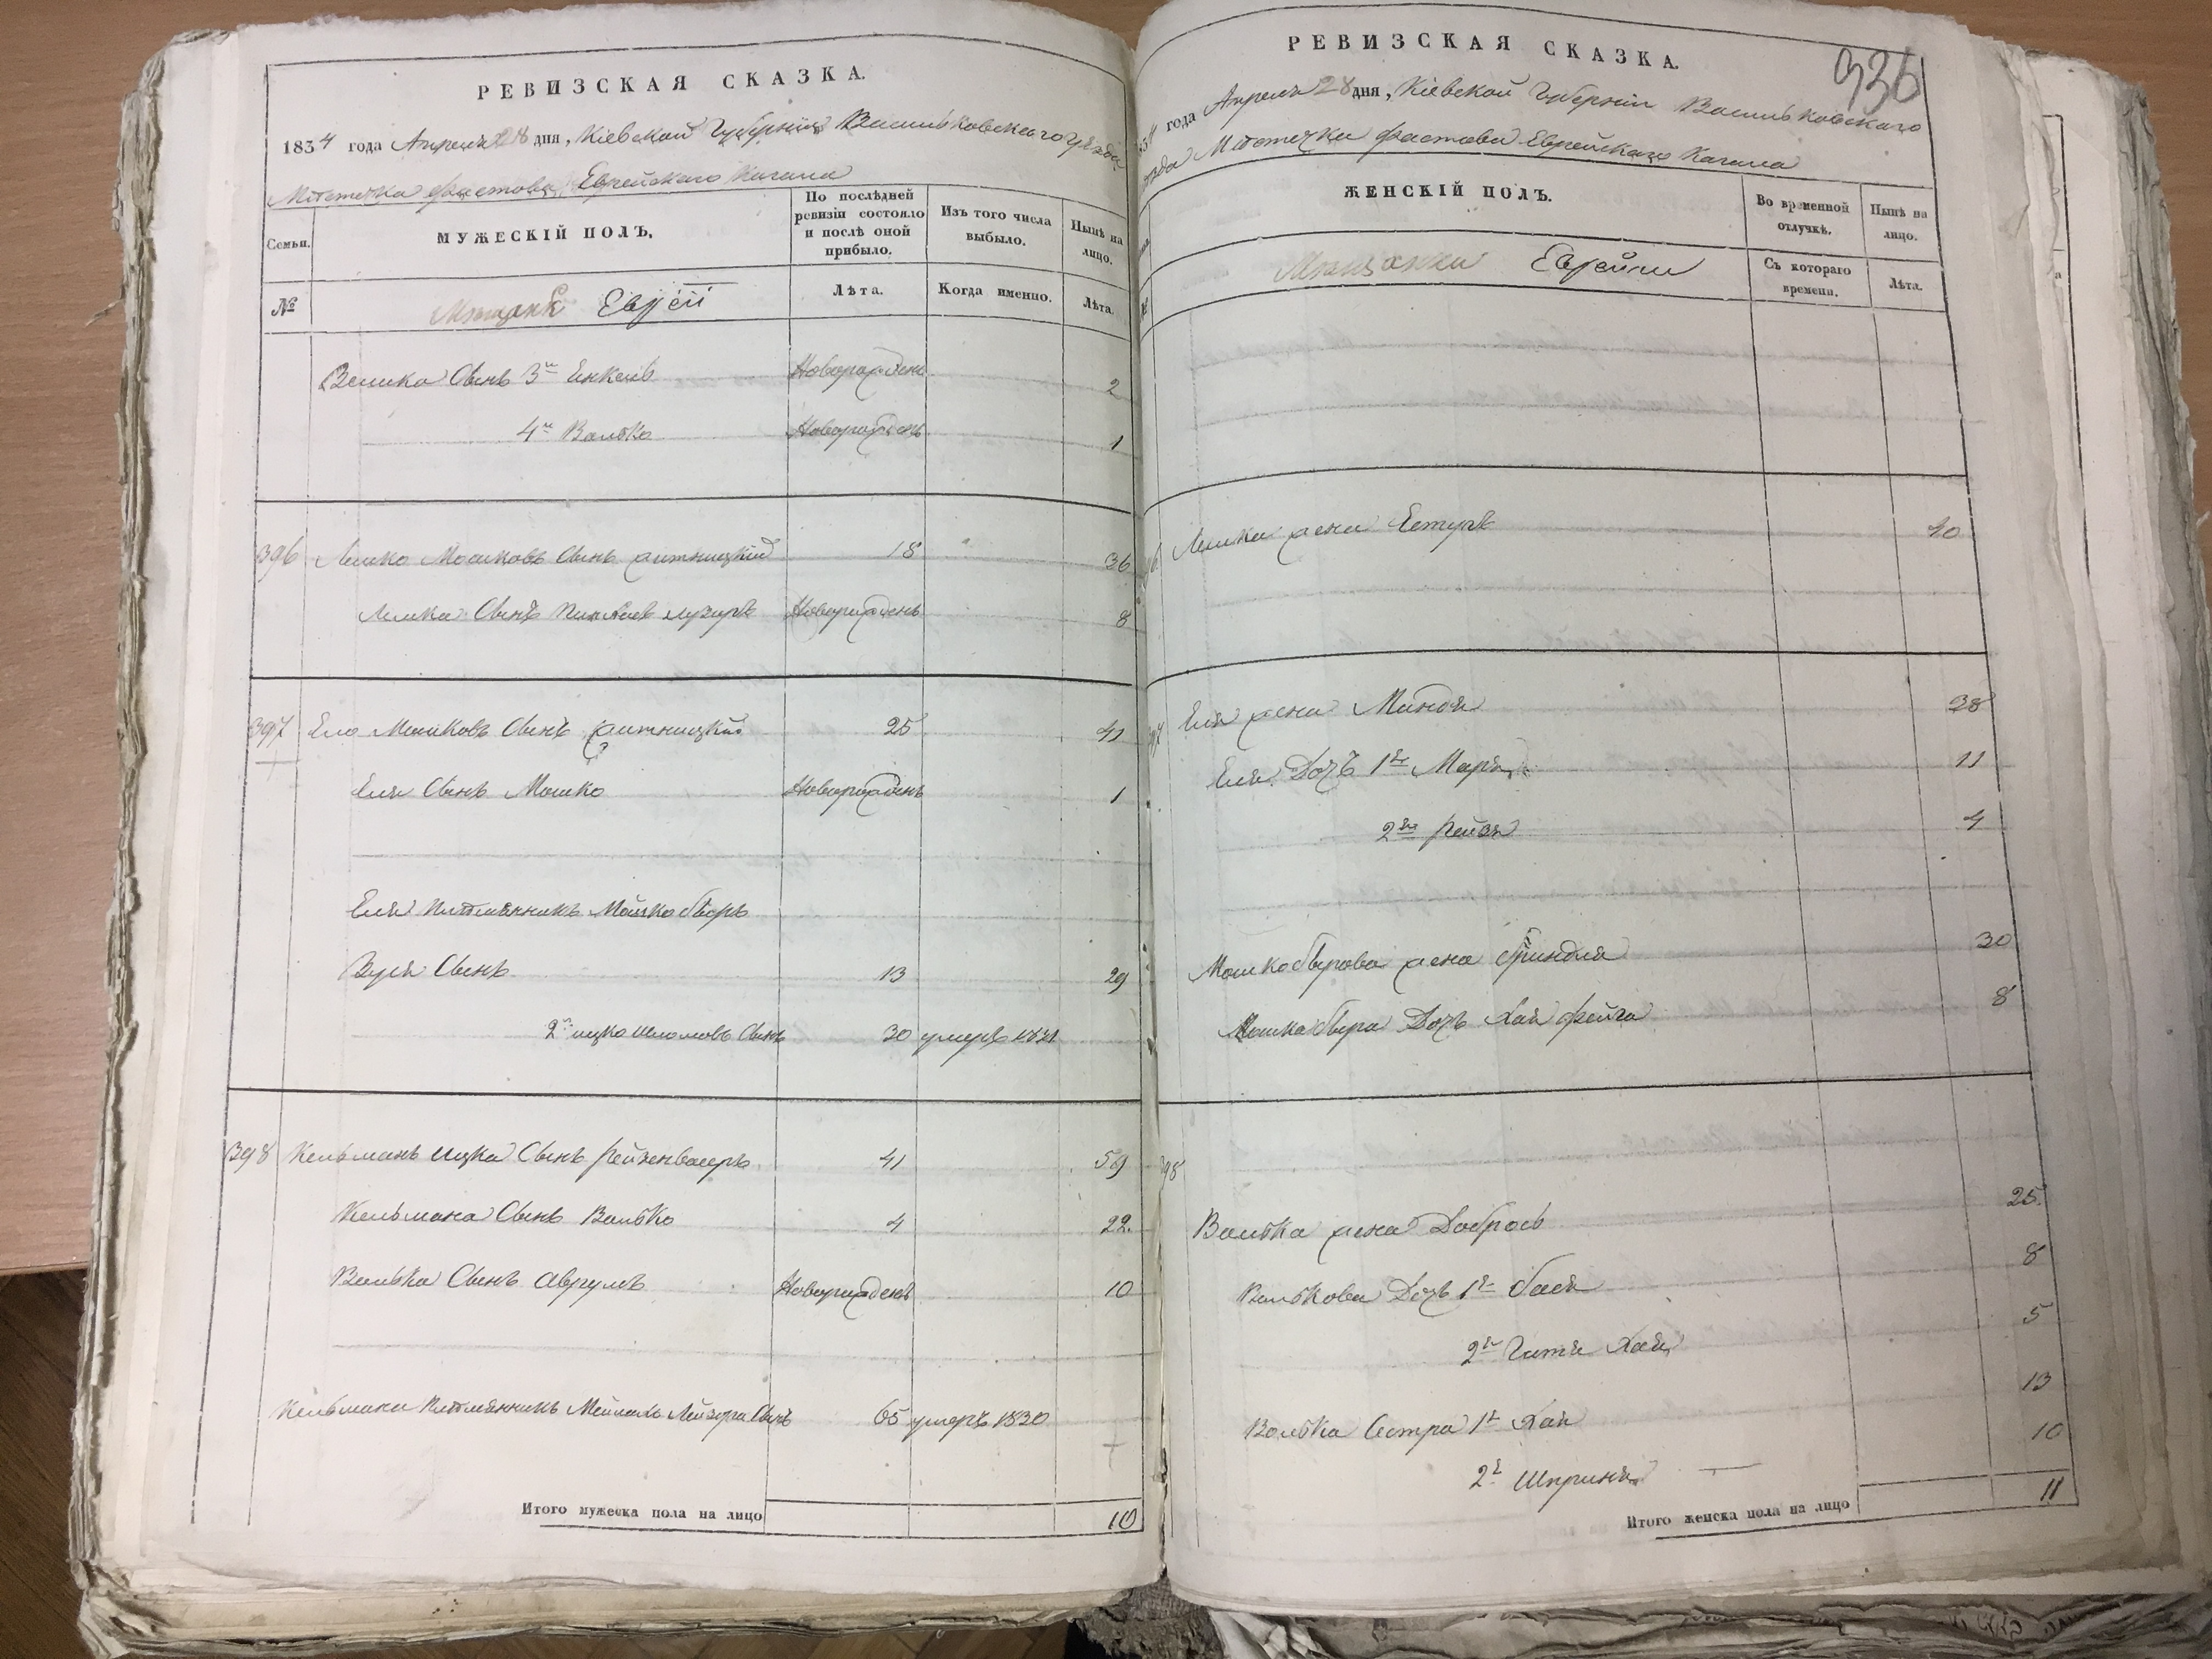 РЕВИЗСКАЯ СКАЗКА.
1834 года Апреля 28 дня, Кіевской Губерніи Васильковского уѣзда
Мѣстечка Фастова Еврейскаго Кагала
Семьи.
МУЖЕСКІЙ ПОЛЪ.
По послѣдней ревизіи состояло и послѣ оной прибыло.
Изъ того числа выбыло.
Нынѣ на лицо.
№
Мѣщане Евреи
Лѣта.
Когда именно.
Лѣта.
Сынъ 3й Новорожденъ 2
4й Волько Новорожденъ 1
396 Лейко Мошковъ Сынъ Житницкій 18 36
Сынъ Новорожденъ 8
397 Ело Мошковъ Сынъ Житницкій 25 41
Еля Сынъ Мошко Новорожденъ 1
Еля Племянникъ Мошко Беръ
Сынъ 13 29
2й Ицко Шломовъ Сынъ 30 умеръ 1831
398 Кельманъ Ицка Сынъ Рейзенбаеръ 41 59
Кельмана Сынъ Волько 4 22.
Волька Сынъ Аврумъ Новорожденъ 10
Кельмана Племянникъ Лейзера Сынъ 65 умеръ 1830
Итого мужеска пола на лицо 10
РЕВИЗСКАЯ СКАЗКА.
936
года Апреля 28 дня, Кіевской Губерніи Васильковскаго
Мѣстечка Фастова Еврейскаго Кагала
ЖЕНСКІЙ ПОЛЪ.
Во временной отлучкѣ.
Нынѣ на лицо.
Мѣщанки Еврейки
Съ котораго времени.
Лѣта.
Лейка жена Естеръ 40
Еля жена Миндя 38
Еля Дочь 1я Марья 11
2я Рейзя 4
Мошко Берова жена Гриндля 30
Мошка Бера Дочь Хая Фейга 8
98
Волька жена Добрось 25.
Волькова Дочь 1я Бася 8
2я Гитя Хая 5
Волька Сестра 1я Хая 13
2я Шприня 10
Итого женска пола на лицо 11